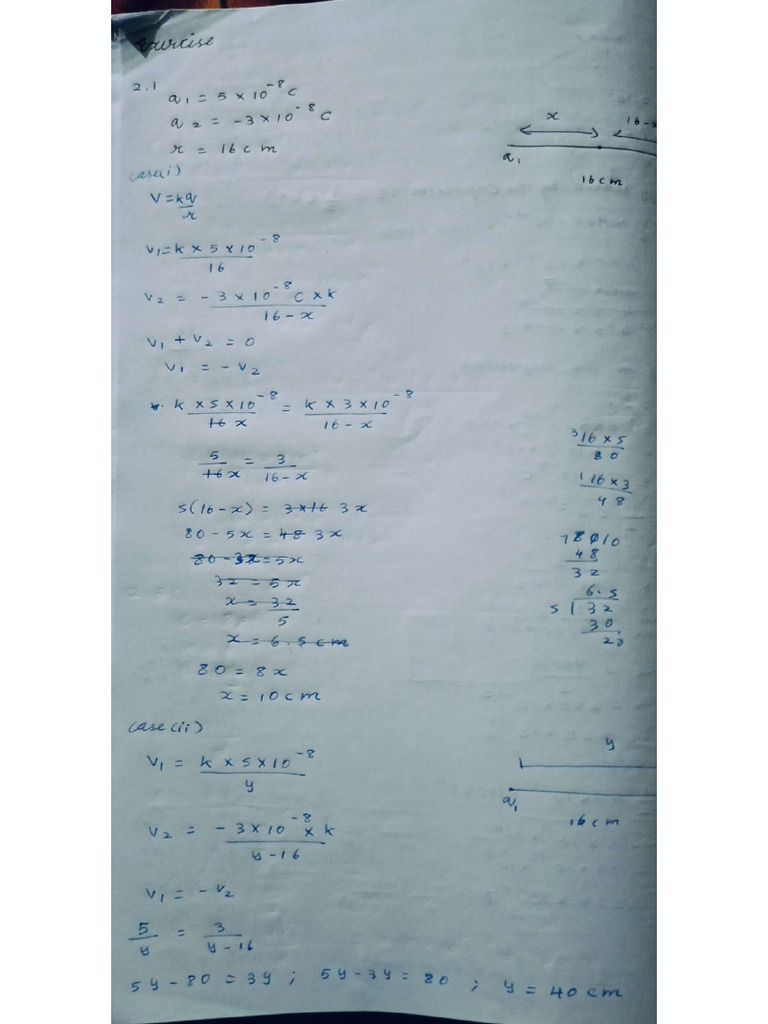 Exercise
2.1
q1 = 5 × 10^-8 C
q2 = -3 × 10^-8 C
r = 16 cm
x 16-x
q1
16 cm
case(i)
V = kq/r
V1 = k × 5 × 10^-8 / 16
V2 = -3 × 10^-8 C × k / 16-x
V1 + V2 = 0
V1 = -V2
k × 5 × 10^-8 / 16 x = k × 3 × 10^-8 / 16-x
5 / 16 x = 3 / 16-x
5(16-x) = 3×16 3x
80 - 5x = 48 3x
80 - 3x = 5x
32 = 5x
x = 32/5
x = 6.5 cm
80 = 8x
x = 10 cm
3 16 × 5
80
1 16 × 3
48
7 8 0 10
48
32
6.5
5 32
30
20
case(ii)
V1 = k × 5 × 10^-8 / y
V2 = -3 × 10^-8 × k / y-16
V1 = -V2
5/y = 3/y-16
y
q1
16 cm
5y - 80 = 3y ; 5y-3y = 80 ; y = 40 cm